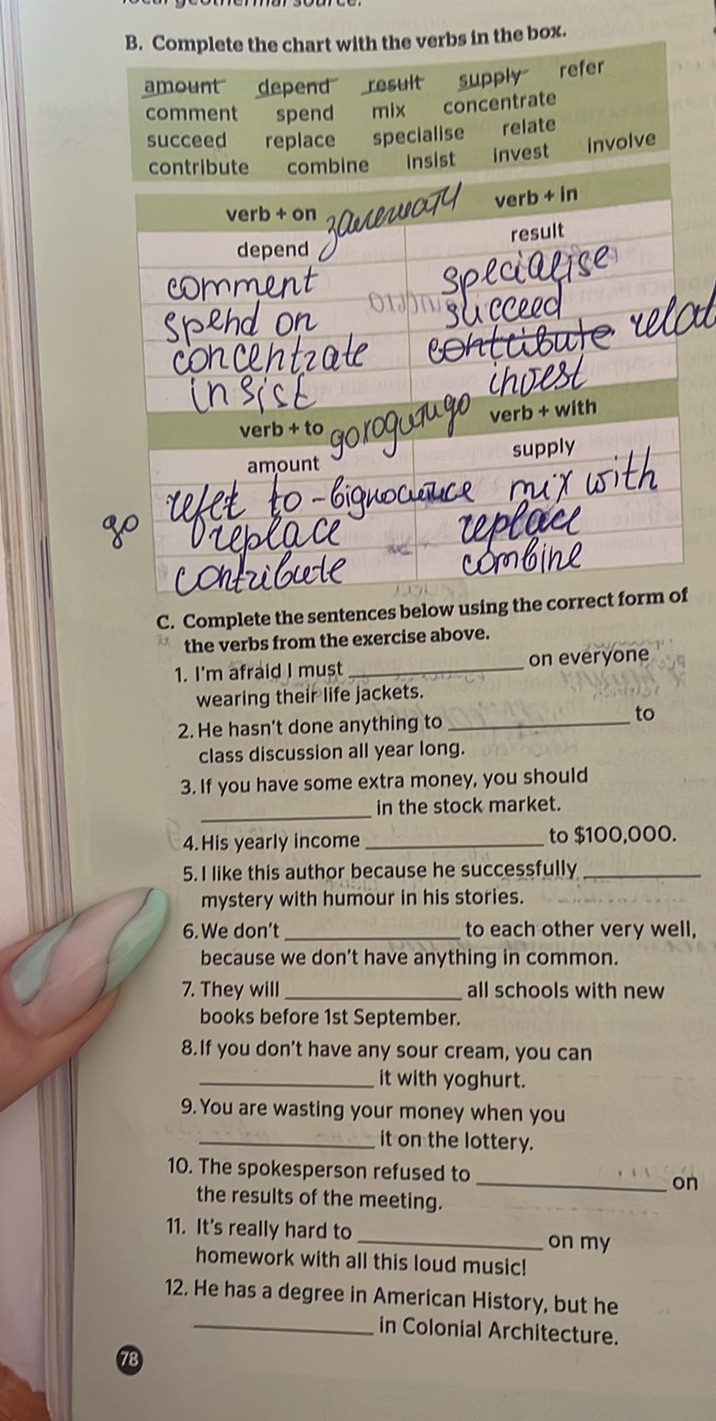 B. Complete the chart with the verbs in the box.
amount depend result supply refer
comment spend mix concentrate
succeed replace specialise relate
contribute combine insist invest involve
verb + on залежати verb + in
depend result
comment specialise
spend on succeed
concentrate contribute relat
insist invest
verb + to verb + with
amount supply
refer to - mix with
до replace replace
contribute combine
C. Complete the sentences below using the correct form of
the verbs from the exercise above.
1. I'm afraid I must ______ on everyone
wearing their life jackets.
2. He hasn't done anything to ______ to
class discussion all year long.
3. If you have some extra money, you should
______ in the stock market.
4. His yearly income ______ to $100,000.
5. I like this author because he successfully ______
mystery with humour in his stories.
6. We don't ______ to each other very well,
because we don't have anything in common.
7. They will ______ all schools with new
books before 1st September.
8. If you don't have any sour cream, you can
______ it with yoghurt.
9. You are wasting your money when you
______ it on the lottery.
10. The spokesperson refused to ______ on
the results of the meeting.
11. It's really hard to ______ on my
homework with all this loud music!
12. He has a degree in American History, but he
______ in Colonial Architecture.
78